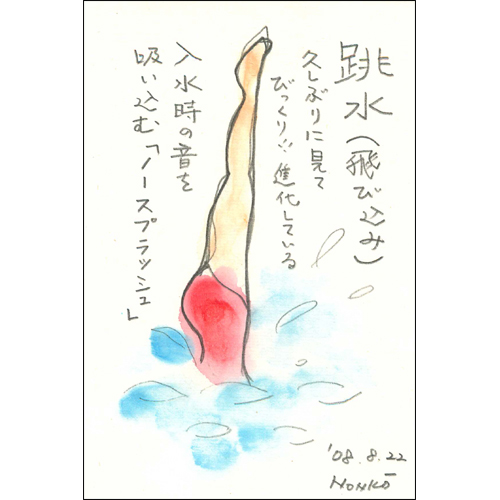 跳水(飛び込み)
久しぶりに見て
びっくり!!進化している
入水時の音を
吸い込む「ノースプラッシュ」
'08.8.22
HONKŌ